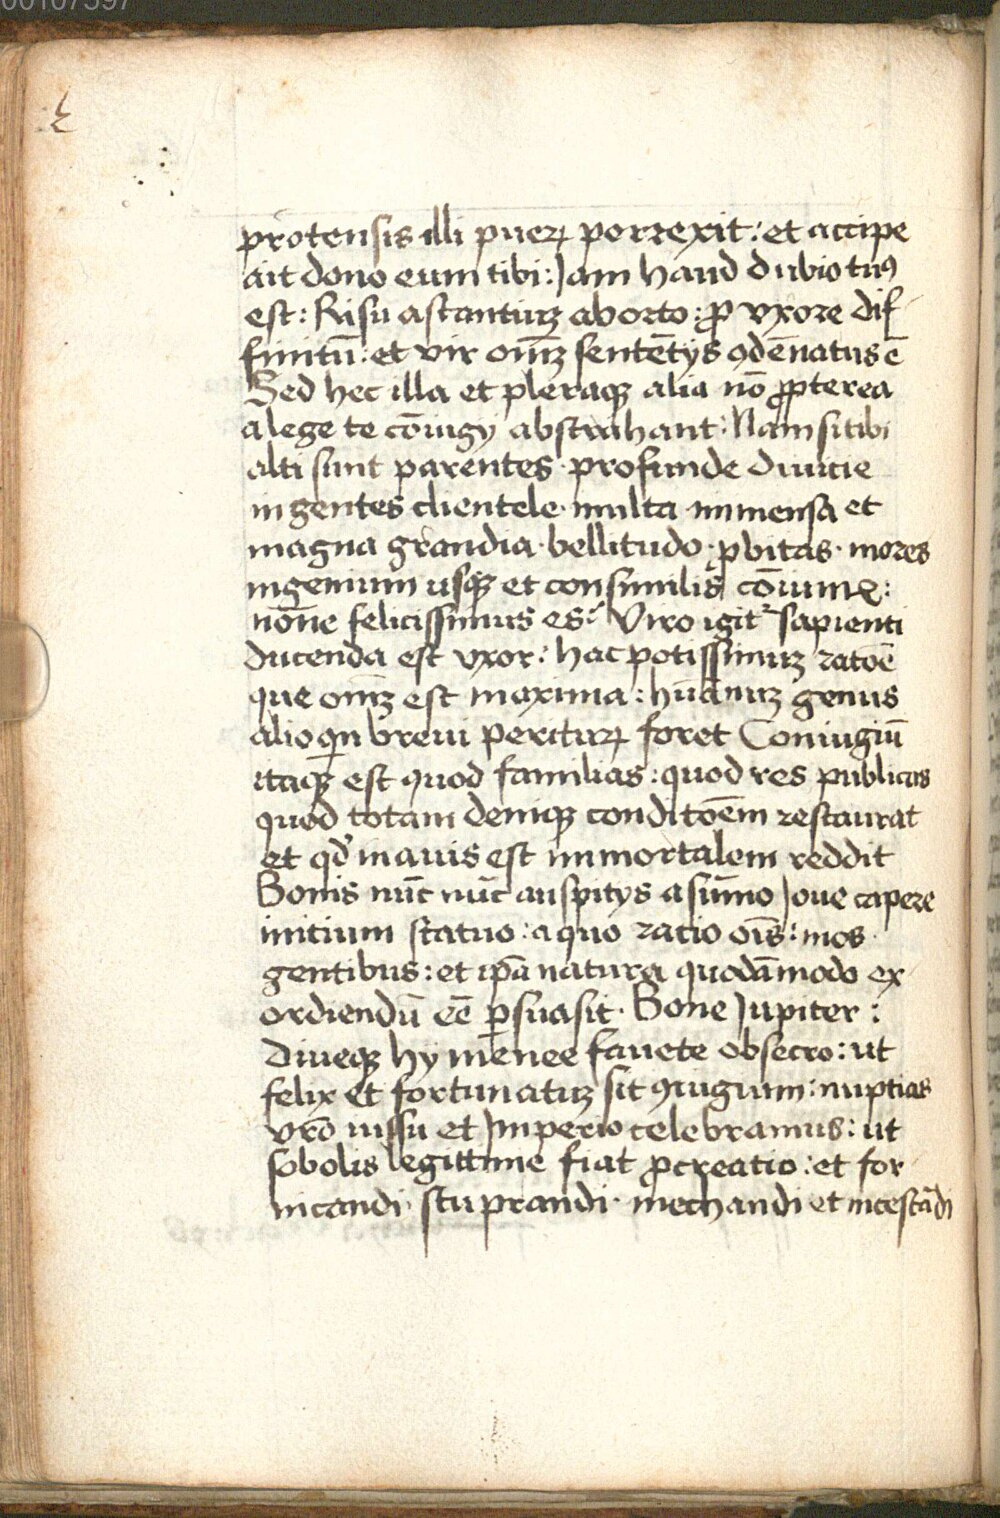 00107597
protensis illi pueꝝ porrexit: et accipe
ait dono eum tibi: Jam haud dubio tuꝰ
est: Risu astantiuꝫ aborto: ꝓ vxore dif
finitū: et vir oīuꝫ sentētijs ꝯdēnatus ē
Sed hec illa et pleraqꝫ alia nō ꝓpterea
a lege te cōiugij abstrahant: Nam si tibi
alti sunt parentes · profunde diuitie
ingentes clientele · multa · immensa et
magna grandia · bellitudo · ꝓbitas · mores
ingenium usqꝫ et consimilis cōiunx:
nōne felicissimus es? Viro igitᷣ sapienti
ducenda est vxor: hac potissimuꝫ ratōē
que oīuꝫ est maxima: hūanuꝫ genus
alioqn breui perituꝝ foret Coniugiū
itaqꝫ est quod familias: quod res publicas
quod totam deniqꝫ conditōēm restaurat
et qd̛ mauis est immortalem reddit
Bonis nūc nūc auspitijs a sūmo Joue capere
initium statuo: a quo ratio oīs: mos
gentibus: et ip̄a natura quodāmodo ex
ordiendū eē ꝑsuasit · Bone Jupiter:
diueqꝫ hymenee fauete obsecro: ut
felix et fortunatuꝫ sit ꝯiugium: nuptias
vr̄o iussu et Jmperio celebramus: ut
sobolis legittime fiat ꝓcreatio: et for
nicandi · stuprandi · mechandi et incestādi